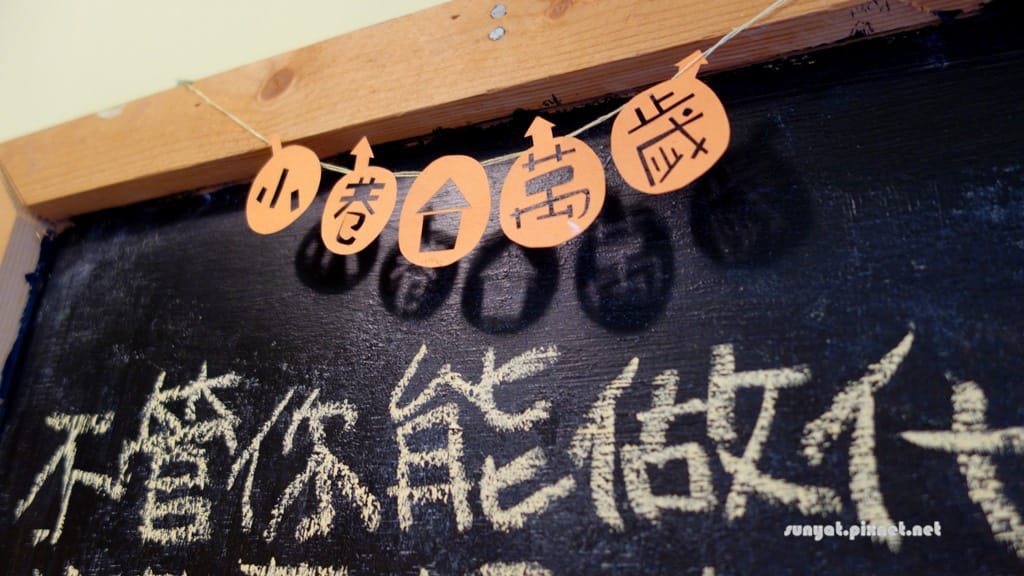 小卷合萬歲
不管你能做什
sunyat.pixnet.net